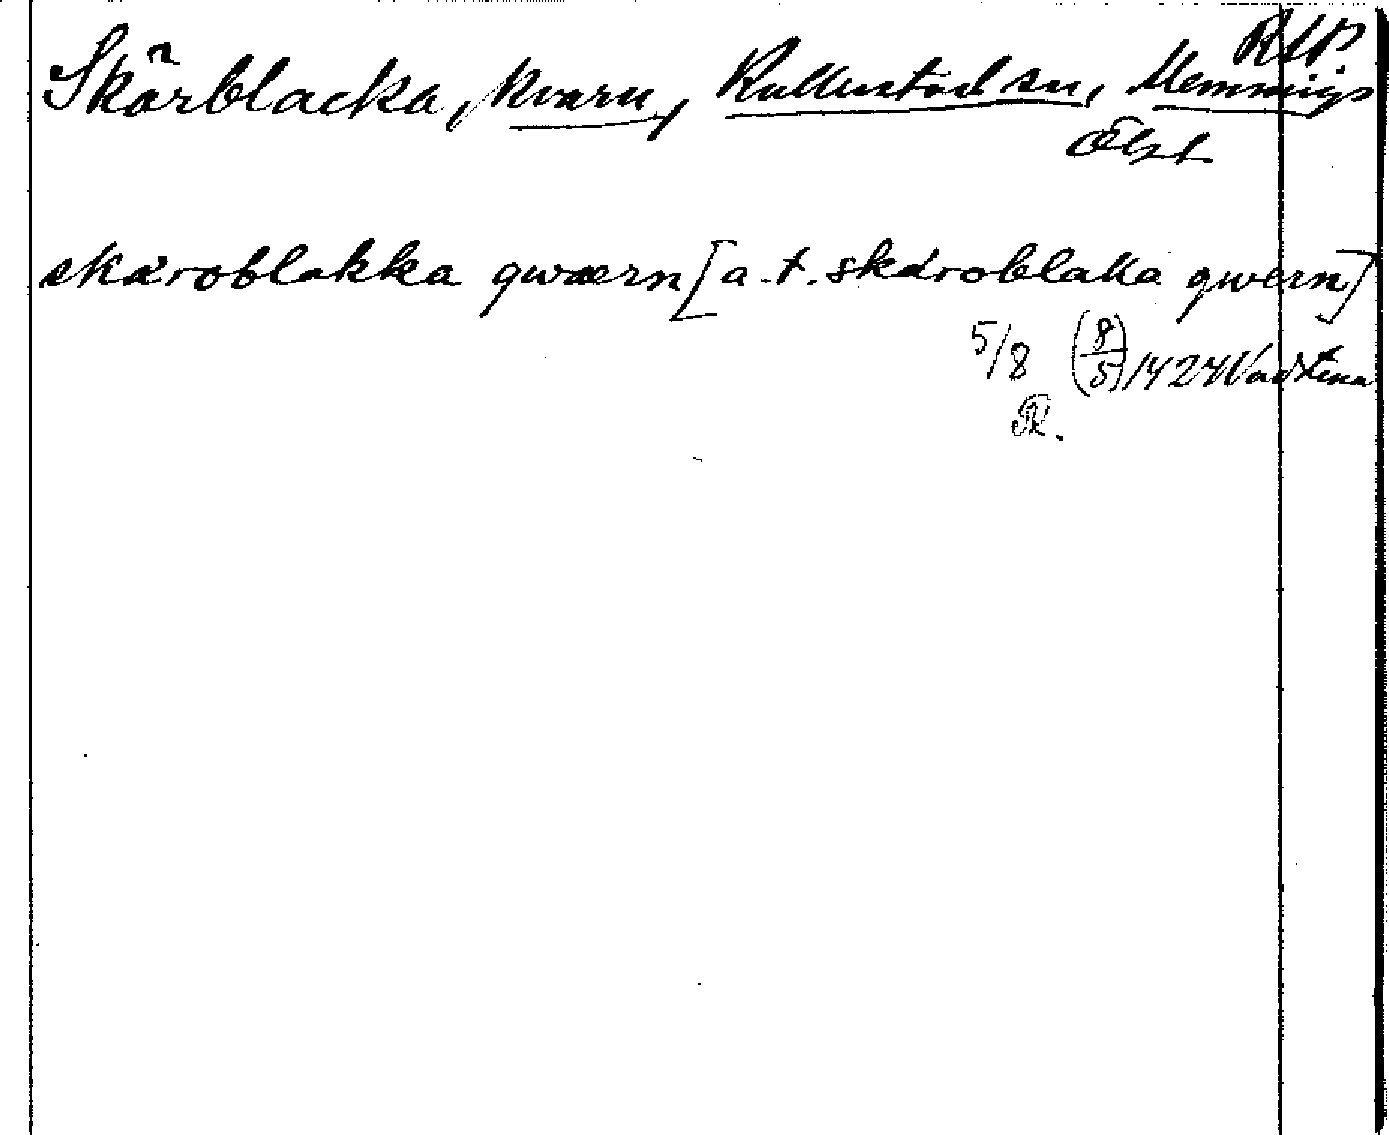 RAP.
Skärblacka, kvarn, Kullerstad sn, Memmings
Ögl
skæroblakka qwærn [a. t. skæroblakka qwern]
5/8 (8/5) 1424 Vadstena
Or.